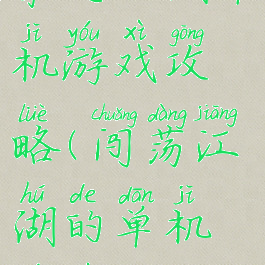 jī yóu xì gōng
机游戏攻
lüè chuǎng dàng jiāng
略(闯荡江
hú de dān jī
湖的单机